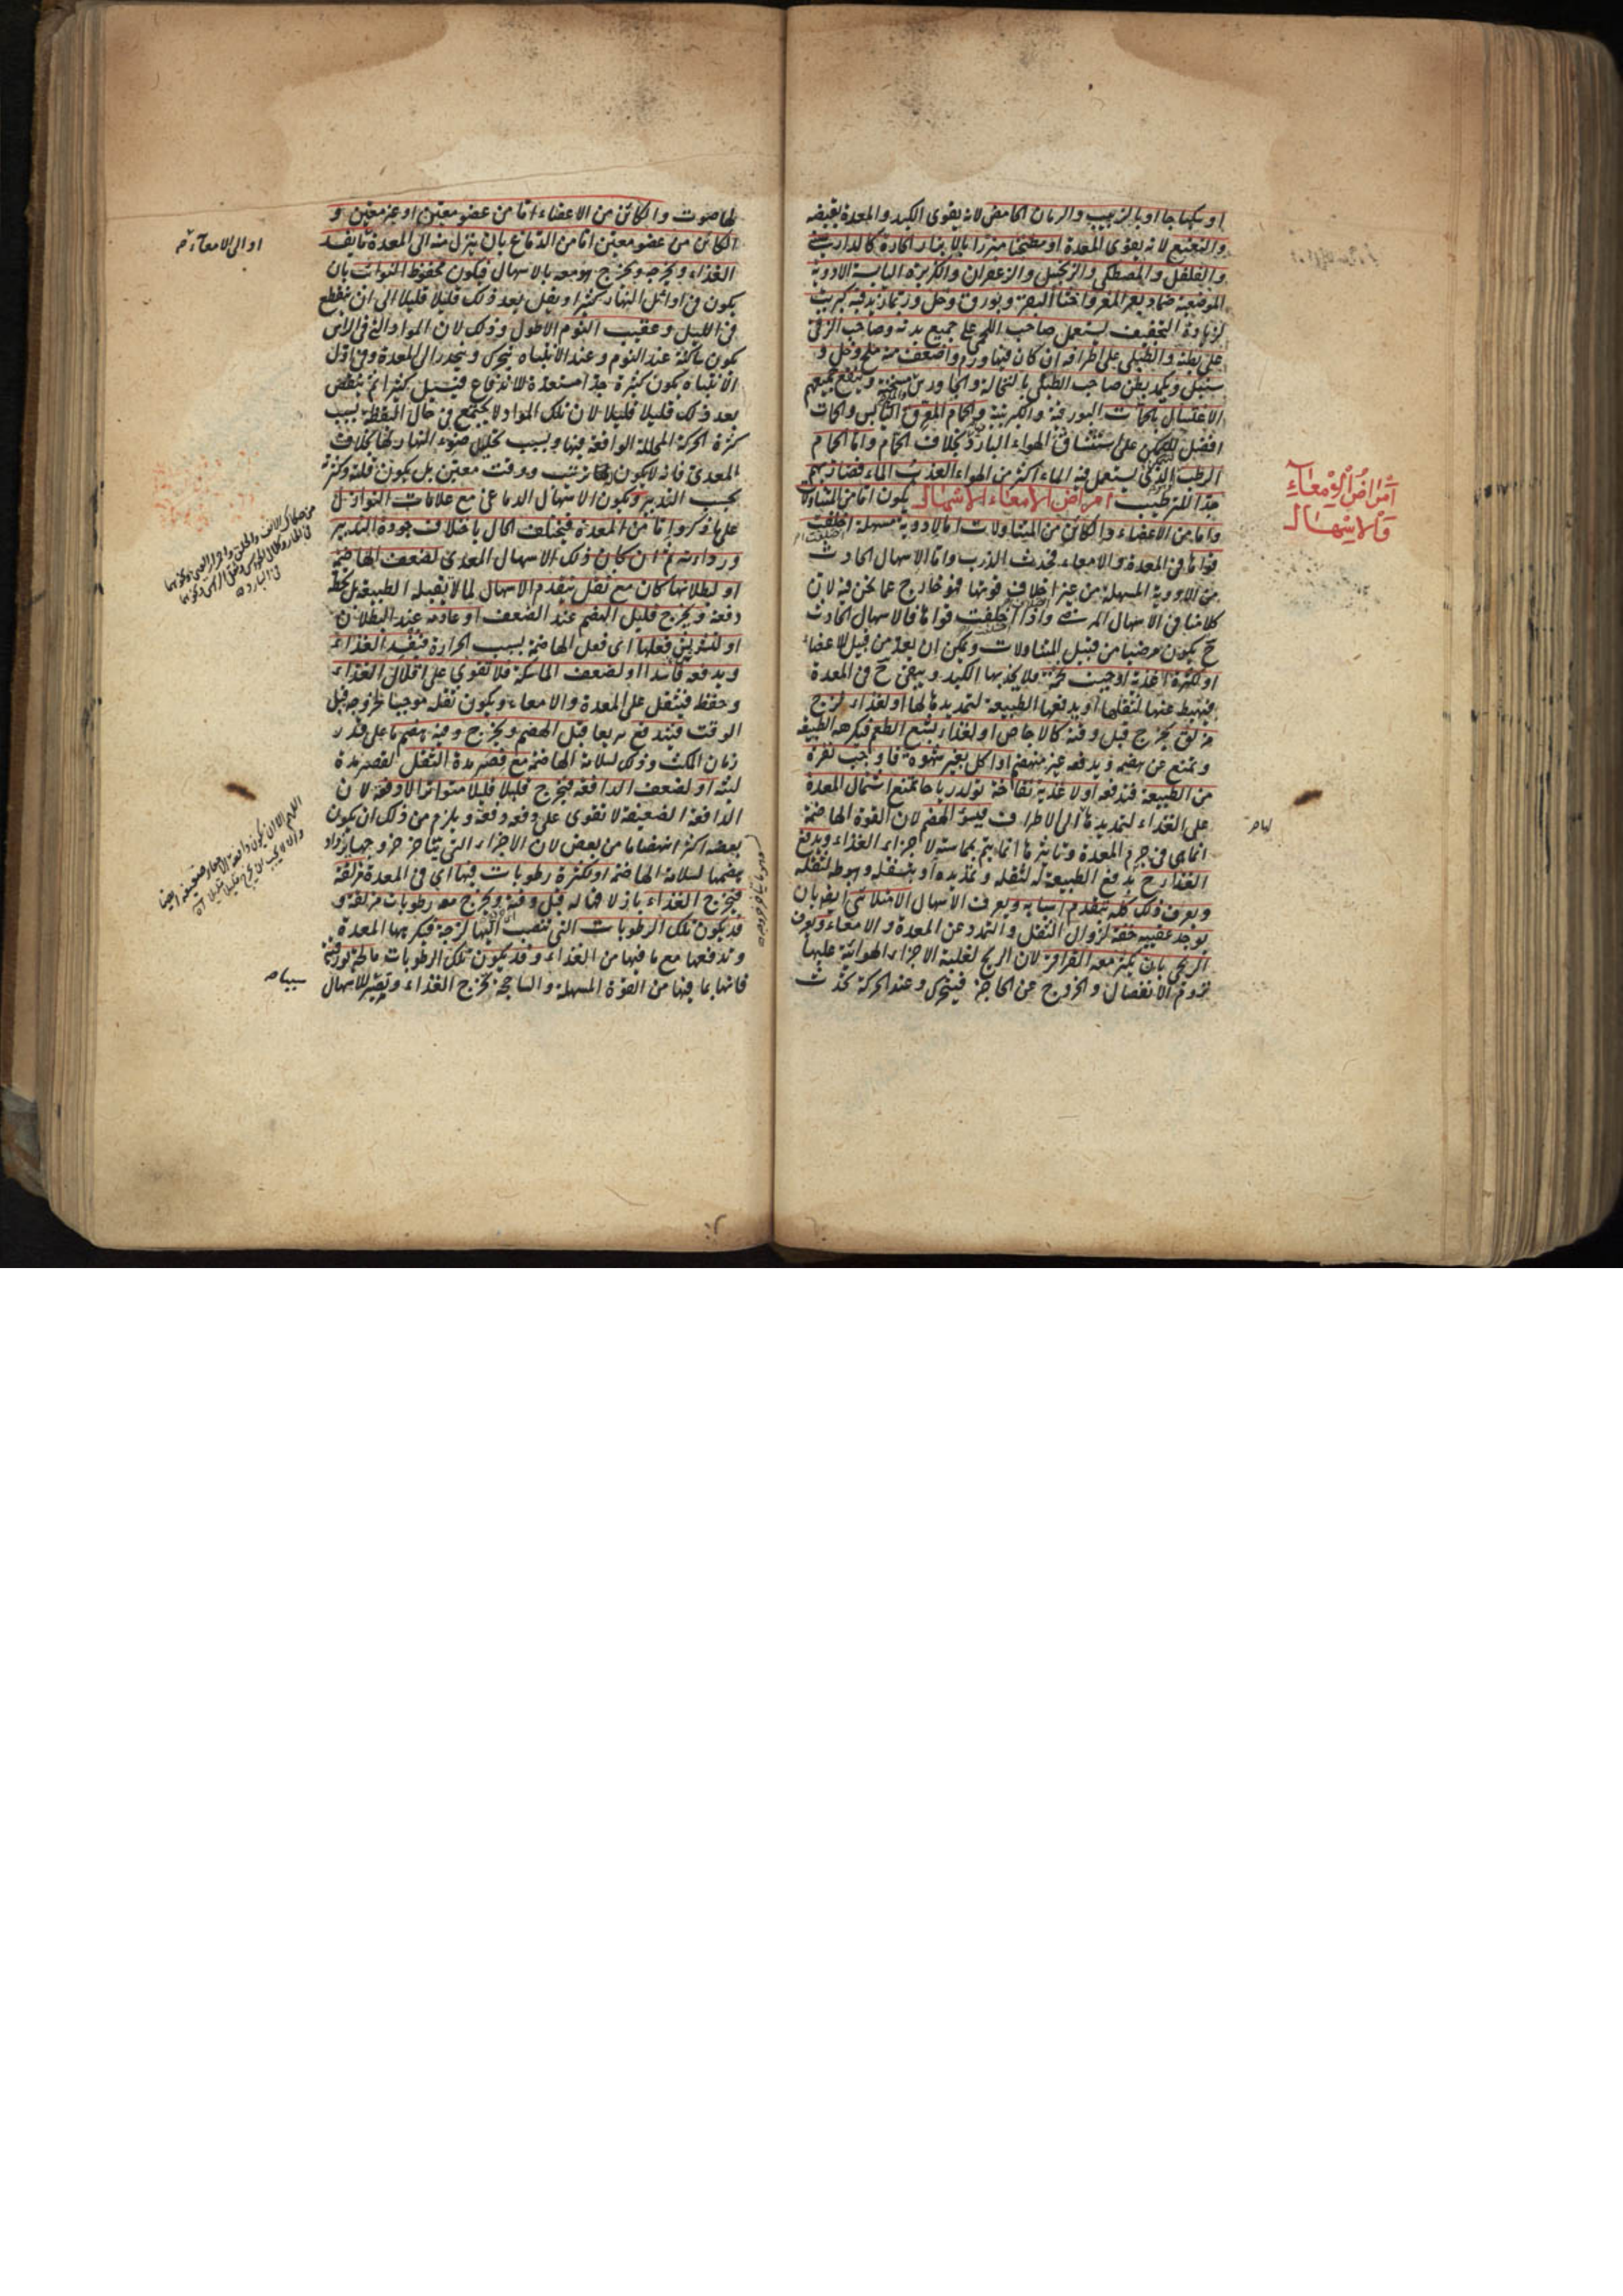 او سكباجا او بالزبيب والرمان الحامض لانه يقوى الكبد والمعدة بقبضه
والنعنع لانه يقوى المعدة او مطبخا مبزرا بالابزار الحارة كالدارصينى
والفلفل والمصطكى والزنجبيل والزعفران والكزبرة اليابسة الادوية
الموضعية ضماد ببعر المعز واخثا البقر وبورق وخل ورماد يزيد فيه كبريت
لزيادة التجفيف يستعمل صاحب اللحمى على جميع بدنه وصاحب الزقى
على بطنه والطبلى على اطرافه ان كان فيها ورم واضعف منه ملح وخل و
سنبل ويكمد بطن صاحب الطبلى بالنخالة والجاورس مسخنة وينفع جميعهم
الاغتسال بالحمات البورقية والكبريتية والحمام المعرق اليابس والحمات
افضل للتمكن على استنشاق الهواء البارد بخلاف الحمام واما الحمام
الرطب الذى يستعمل فيه الماء اكثر من الهواء العذب الماء فضار بهم
جدا للترطيب امراض الامعاء الاسهال يكون اما من المتناولات
واما من الاعضاء والكائن من المتناولات اما لادوية مسهلة اختلفت
قواها فى المعدة والامعاء فحدث الذرب واما الاسهال الحادث
من الادوية المسهلة من غير اختلاف قوتها فهو خارج عما نحن فيه لان
كلامنا فى الاسهال المرضى واذا اختلفت قواها فالاسهال الحادث
ح يكون مرضيا من قبيل المتناولات ويمكن ان يعد من قبيل الاعضاء
او لكثرة اغذية اوجبت تخمة ولا يجذبها الكبد ويبقى ح فى المعدة
فيهبط عنها لثقلها او يدفعها الطبيعة لتمديدها لها او لغذاء لزج
مزلق يخرج قبل وقته كالاجاص او لغذاء بشع الطعم فيكرهه الطبيعة
ويمتنع عن هضمه ويدفعه غير منهضم او اكل بغير شهوة فاوجب نفرة
من الطبيعة فتدفعه او لاغذية نفاخة تولد رياحا تمنع اشتمال المعدة
على الغذاء لتمديدها الى الاطراف فيسوء الهضم لان القوة الهاضمة
انما هى فى جرم المعدة وتاثيرها انما يتم بمماسته لاجزاء الغذاء ويدفع
الغذاء ح بدفع الطبيعة له لثقله وتمديده او بتسفله وهبوطه لثقله
ويعرف ذلك كله بتقدم اسبابه ويعرف الاسهال الامتلائى ايضا بان
يوجد عقيبه خفة لزوال الثقل والتمدد عن المعدة والامعاء ويعرف
الريحى بان يكثر معه القراقر لان الريح لغلبة الاجزاء الهوائية عليها
تروم الانفصال والخروج عن الحاجز فيتحرك وعند الحركة تحدث
امراض الامعاء
والاسهال
لها صوت والكائن من الاعضاء اما من عضو معين او غير معين و
الكائن من عضو معين اما من الدماغ بان ينزل منه الى المعدة ما يفسد
الغذاء ويخرجه ويخرج هو معه بالاسهال فيكون محفوظ النوائب بان
يكون فى اوائل النهار كثيرا ويقل بعد ذلك قليلا قليلا الى ان ينقطع
فى الليل وعقيب النوم الاطول وذلك لان المواد التى فى الراس
يكون ساكنة عند النوم وعند الانتباه يتحرك وينحدر الى المعدة وفى اول
الانتباه يكون كثيرة جدا مستعدة للاندفاع فيسيل كثيرا ثم ينقص
بعد ذلك قليلا قليلا لان تلك المواد لا يجتمع فى حال اليقظة بسبب
كثرة الحركة المحللة الواقعة فيها وبسبب تحليل ضوء النهار لها بخلاف
المعدى فانه لا يكون لها ترتيب ووقت معين بل يكون قلته وكثرته
بحسب التدبير ويكون الاسهال الدماغى مع علامات النوازل
على ما ذكروا اما من المعدة فيختلف الحال باختلاف جودة التدبير
وردائته ثم ان كان ذلك الاسهال المعدى لضعف الهاضمة
او لبطلانها كان مع ثقل يتقدم الاسهال لما لا يقبله الطبيعة بل تحطه
دفعة ويخرج قليل الهضم عند الضعف او عادمه عند البطلان
او لتشويش فعلها اى فعل الهاضمة بسبب الحرارة فيفسد الغذاء
ويدفعه فاسدا او لضعف الماسكة فلا تقوى على اقلال الغذاء
وحفظه فيثقل على المعدة والامعاء ويكون ثقله موجبا لخروجه قبل
الوقت فيندفع سريعا قبل الهضم ويخرج وفيه هضم ما على قدر
زمان المكث وذلك لسلامة الهاضمة مع قصر مدة الثقل لقصر مدة
لبثه او لضعف الدافعة فيخرج قليلا قليلا متواترا لا دفعة لان
الدافعة الضعيفة لا تقوى على دفعه دفعة ويلزم من ذلك ان يكون
بعضه اكثر انهضاما من بعض لان الاجزاء التى يتاخر خروجها يزداد
هضمها لسلامة الهاضمة او لكثرة رطوبات فيها اى فى المعدة مزلقة
فيخرج الغذاء بازلاقها له قبل وقته ويخرج معه رطوبات مزلقة و
قد يكون تلك الرطوبات التى تنصب اليها لزجة فيكرهها المعدة
وتدفعها مع ما فيها من الغذاء وقد يكون تلك الرطوبات مالحة بورقية
فانها بما فيها من القوة المسهلة والساحجة تخرج الغذاء وتصير للاسهال
او الى الامعاء
سببا